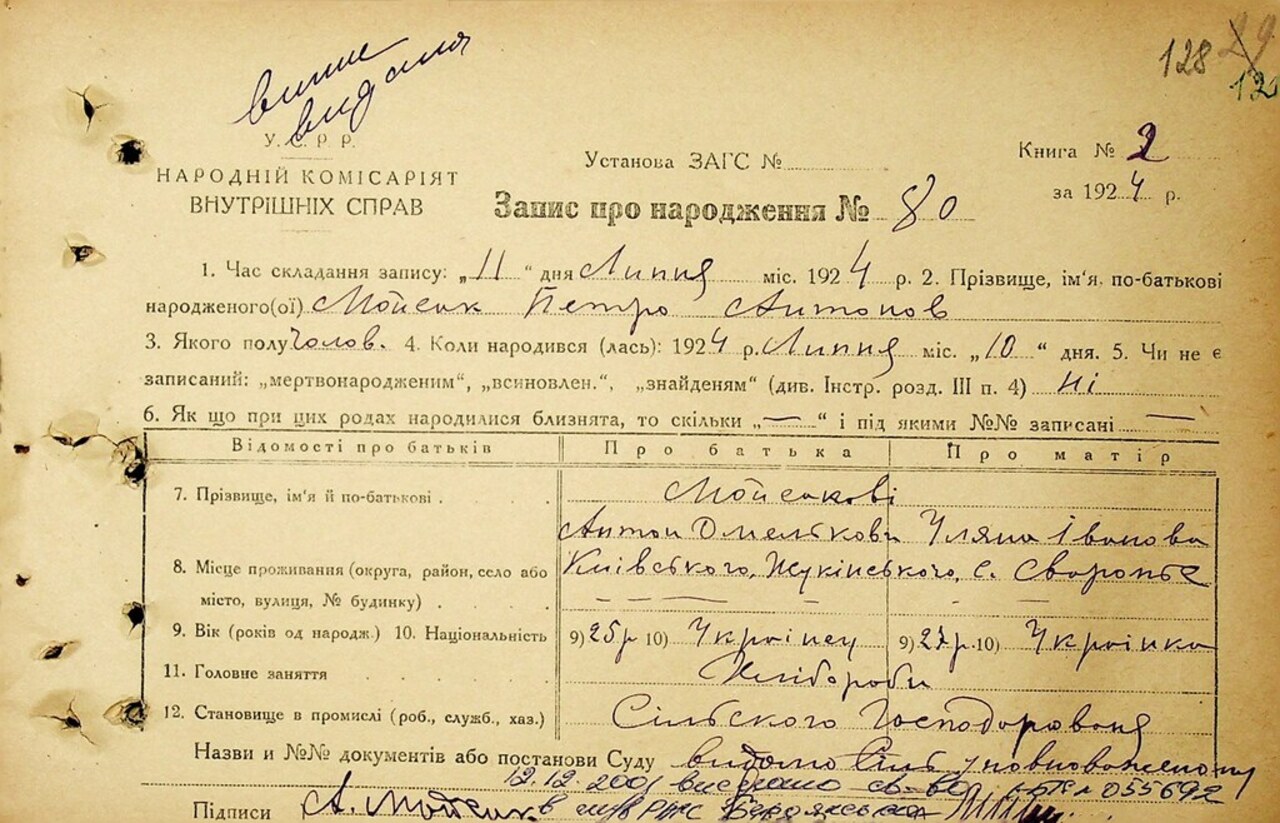 128 29
12
У. С. Р. Р.
НАРОДНІЙ КОМІСАРІЯТ
ВНУТРІШНІХ СПРАВ
Установа ЗАГС №
Книга № 2
за 1924 р.
Запис про народження № 80
1. Час складання запису: „11“ дня Липня міс. 1924 р. 2. Прізвище, ім'я, по-батькові
народженого(ої) Мойсик Петро Антонов
3. Якого полу Чолов. 4. Коли народився (лась): 1924 р. Липня міс. „10“ дня. 5. Чи не є
записаний: „мертвонародженим“, „всиновлен.“, „знайденям“ (див. Інстр. розд. III п. 4) Ні
6. Як що при цих родах народилися близнята, то скільки „—“ і під якими №№ записані —
Відомості про батьків Про батька Про матір
7. Прізвище, ім'я й по-батькові Мойсикові
Антон Омелькови Уляна Іванова
8. Місце проживання (округа, район, село або Київського, Жукінського, с.
місто, вулиця, № будинку)
9. Вік (років од народж.) 10. Національність 9) 25 р 10) Українец 9) 27 р. 10) Українка
11. Головне заняття Хлібороби
12. Становище в промислі (роб., служб., хаз.) Сільского Господарованя
Назви и №№ документів або постанови Суду видано Сіль уповноваженому
12.12.2001 св-во 055692
Підписи А. Мойсик в